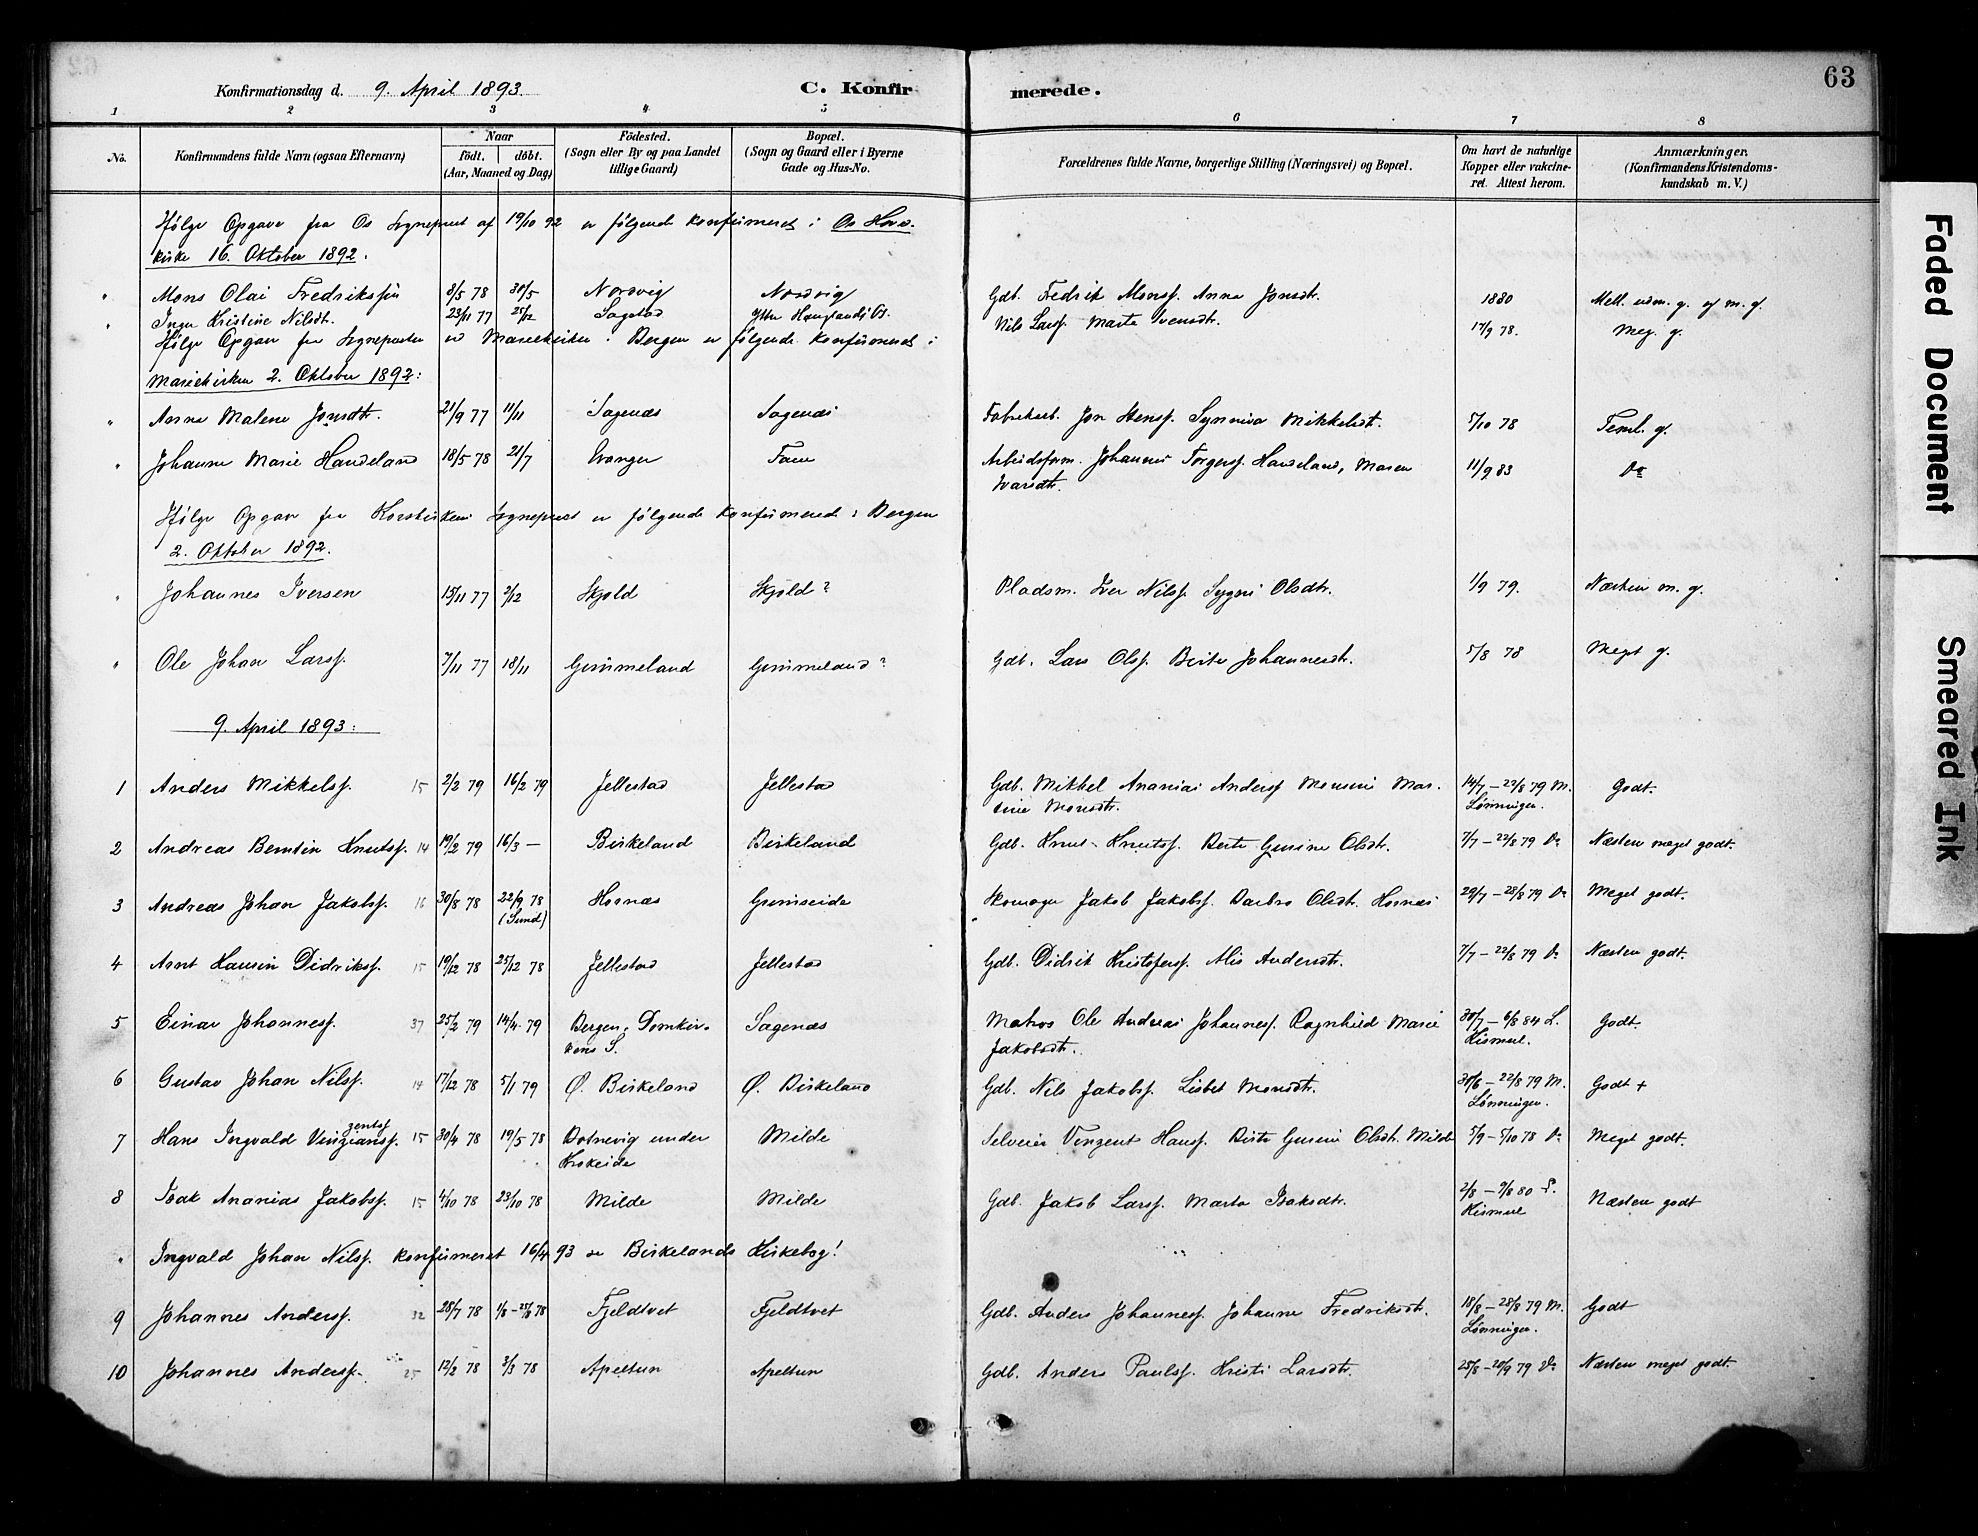 63
Konfirmationsdag d. 9. April 1893. C. Konfirmerede.
1 2 3 4 5 6 7 8
No. Konfirmandens fulde Navn (ogsaa Efternavn) Naar födt. döbt. (Aar, Maaned og Dag) Födested. (Sogn eller By og paa Landet tillige Gaard) Bopæl. (Sogn og Gaard eller i Byerne Gade og Hus-No. Forældrenes fulde Navne, borgerlige Stilling (Næringsvei) og Bopæl. Om havt de naturlige Kopper eller vakcineret. Attest herom. Anmærkninger. (Konfirmandens Kristendomskundskab m. V.)
Ifølge Opgave fra Os Sogneprest af 19/10 92 er følgende konfirmeret i Os Hovedkirke 16. Oktober 1892.
" Mons Olai Fredriksen 8/5 78 30/5 Nordvig Nordvig Gdb. Fedrik Monss. Anna Jonsdtr. 1880 Mell. udm. g. og m. g.
" Inga Kristine Nilsdt. 23/11 77 25/12 Sagstad Ytre Haugland, Os. Nils Larss. Marta Svensdtr. 17/9 78. Meg. g.
Ifølge Opgave fra Sognepresten ved Mariekirken i Bergen er følgende konfirmeret i
Mariekirken 2. Oktober 1892:
" Anna Malene Jonsdtr. 21/9 77 11/11 Sagenæs Sagenæs Fabrikarb. Jon Stenss. Synniva Mikkelsdt. 5/10 78 Teml. g.
" Johanne Marie Haudeland 18/5 78 21/7 Evanger Fane Arbeidsform. Johannes Torgerss. Haudeland, Maren Ivarsdtr. 11/9 83 Do
Ifølge Opgave fra Korskirkens Sogneprest er følgende konfirmerede i Bergen
2. Oktober 1892.
" Johannes Iversen 15/11 77 2/12 Skjold Skjold? Pladsm. Iver Nilss. Sygni Olsdtr. 1/9 79. Næsten m. g.
" Ole Johan Larss. 7/11 77 18/11 Grimmeland Grimmeland? Gdb. Lars Olss. Birte Johannesdtr. 5/8 78 Meget g.
9. April 1893:
1 Anders Mikkelss. 15 2/2 79 16/2 79 Jellestad Jellestad Gdb. Mikkel Ananias Anderss. Monsine Martine Monsdtr. 14/7 – 22/8 79 M. Lönninger. Godt.
2 Andreas Berntin Knutss. 14 19/2 79 16/3 — Birkeland Birkeland Gdb. Knut Knutss. Berte Gurine Olsdtr. 7/7 – 22/8 79 Do Næsten meget godt.
3 Andreas Johan Jakobss. 16 30/8 78 22/9 78 (Sund) Hornæs Grimseide Skomager Jakob Jakobss. Barbro Olsdtr. Hornæs 29/7 – 28/8 79 Do Meget godt.
4 Arnt Hansin Didrikss. 15 19/12 78 25/12 78 Jellestad Jellestad Gdb. Didrik Kristoferss. Alis Andersdtr. 7/7 – 22/8 79 Do Næsten godt.
5 Einar Johanness. 37 25/2 79 14/4 79 Bergen, Domkirkens S. Sagenæs Matros Ole Andreas Johanness. Ragnhild Marie Jakobsdtr. 30/7 – 6/8 84 L. Kismul. Godt.
6 Gustav Johan Nilss. 14 17/12 78 5/1 79 Ö. Birkeland Ö. Birkeland Gdb. Nils Jakobss. Lisbet Monsdtr. 30/6 – 22/8 79 M. Lönninger. Godt +
7 Hans Ingvald Vinzianss. zentss 15 30/4 78 19/5 78 Dotnevig under Krokeide Milde Selveier Vinzent Hanss. Birte Gurine Olsdtr. Milde 5/9 – 5/10 78 Do Meget godt.
8 Isak Ananias Jakobss. 15 4/10 78 23/10 78 Milde Milde Gdb. Jakob Larss. Marta Isaksdtr. 2/8 – 9/8 80 P. Kismul Næsten godt
" Ingvald Johan Nilss. konfirmeret 16/4 93 se Birkelands Kirkebog!
9 Johannes Anderss. 32 28/7 78 1/8 – 25/8 78 Fjeldtvet Fjeldtvet Gdb. Anders Johanness. Johanne Fredriksdtr. 18/8 – 28/8 79 M. Lönninger. Godt
10 Johannes Anderss. 25 12/2 78 3/3 78 Apeltun Apeltun Gdb. Anders Paulss. Kristi Larsdtr. 25/8 – 20/9 79 Do Næsten meget godt.
Faded Document
Smeared Ink